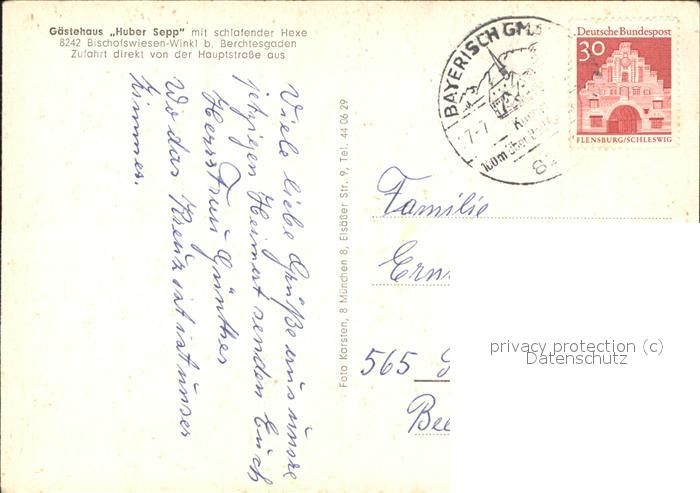 Gästehaus „Huber Sepp" mit schlafender Hexe
8242 Bischofswiesen-Winkl b. Berchtesgaden
Zufahrt direkt von der Hauptstraße aus
Viele liebe Grüße aus unsre
jetzigen Heimat senden Euch
Herr Frau Günther
Wo das Kreuz ist ist unser
Zimmer.
Foto Karsten, 8 München 8, Elsäßer Str. 9, Tel. 44 06 29
BAYERISCH GM
7-7
100m über
82
Deutsche Bundespost
30
FLENSBURG/SCHLESWIG
Familie
Ern
565
Bee
privacy protection (c)
Datenschutz